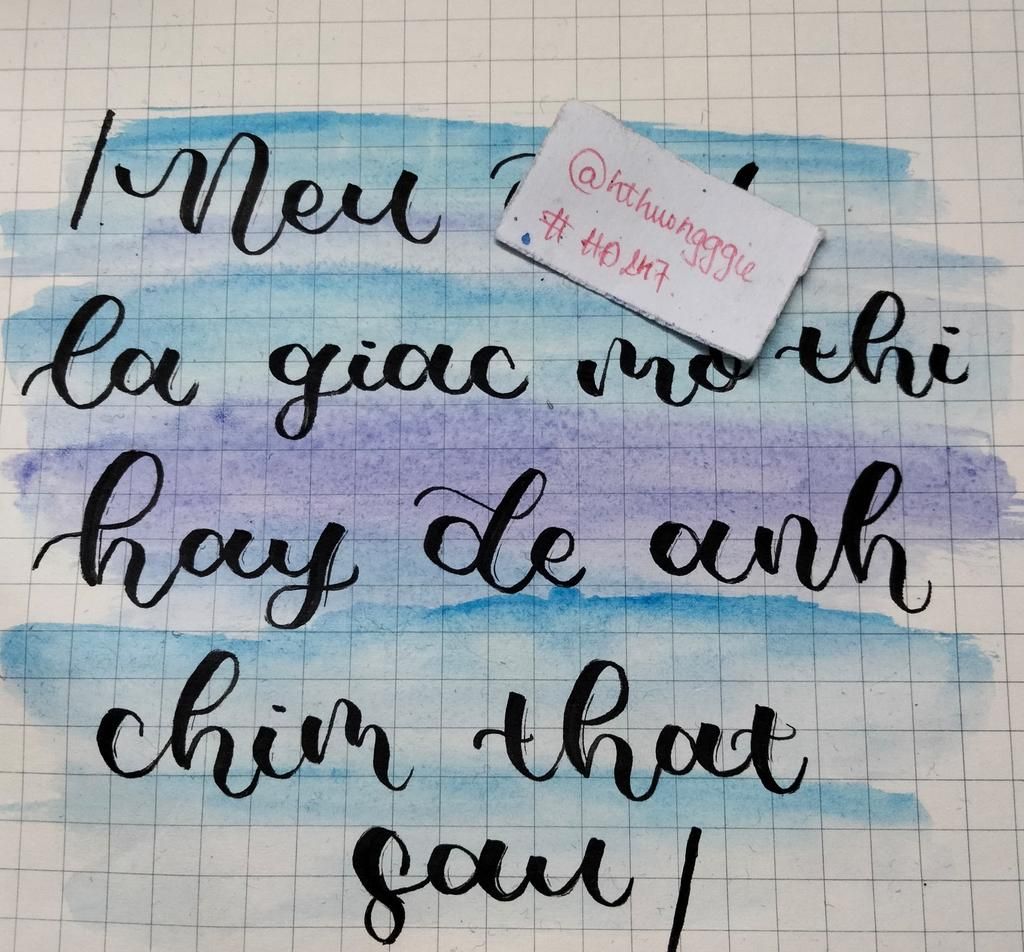 / Neu
@hthuongggie
la giac mo thi
hay de anh
chim that
sau /